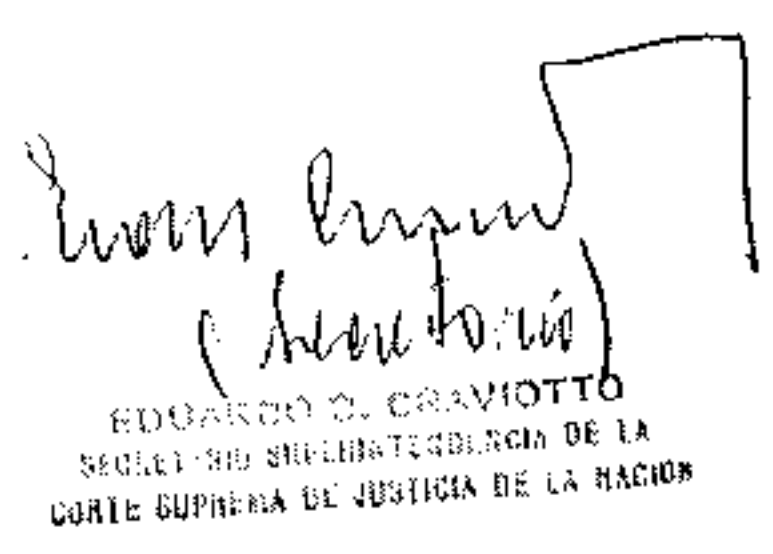 (Secretario)
EDUARDO D. CRAVIOTTO
SECRETARIO SUPERINTENDENCIA DE LA
CORTE SUPREMA DE JUSTICIA DE LA NACION